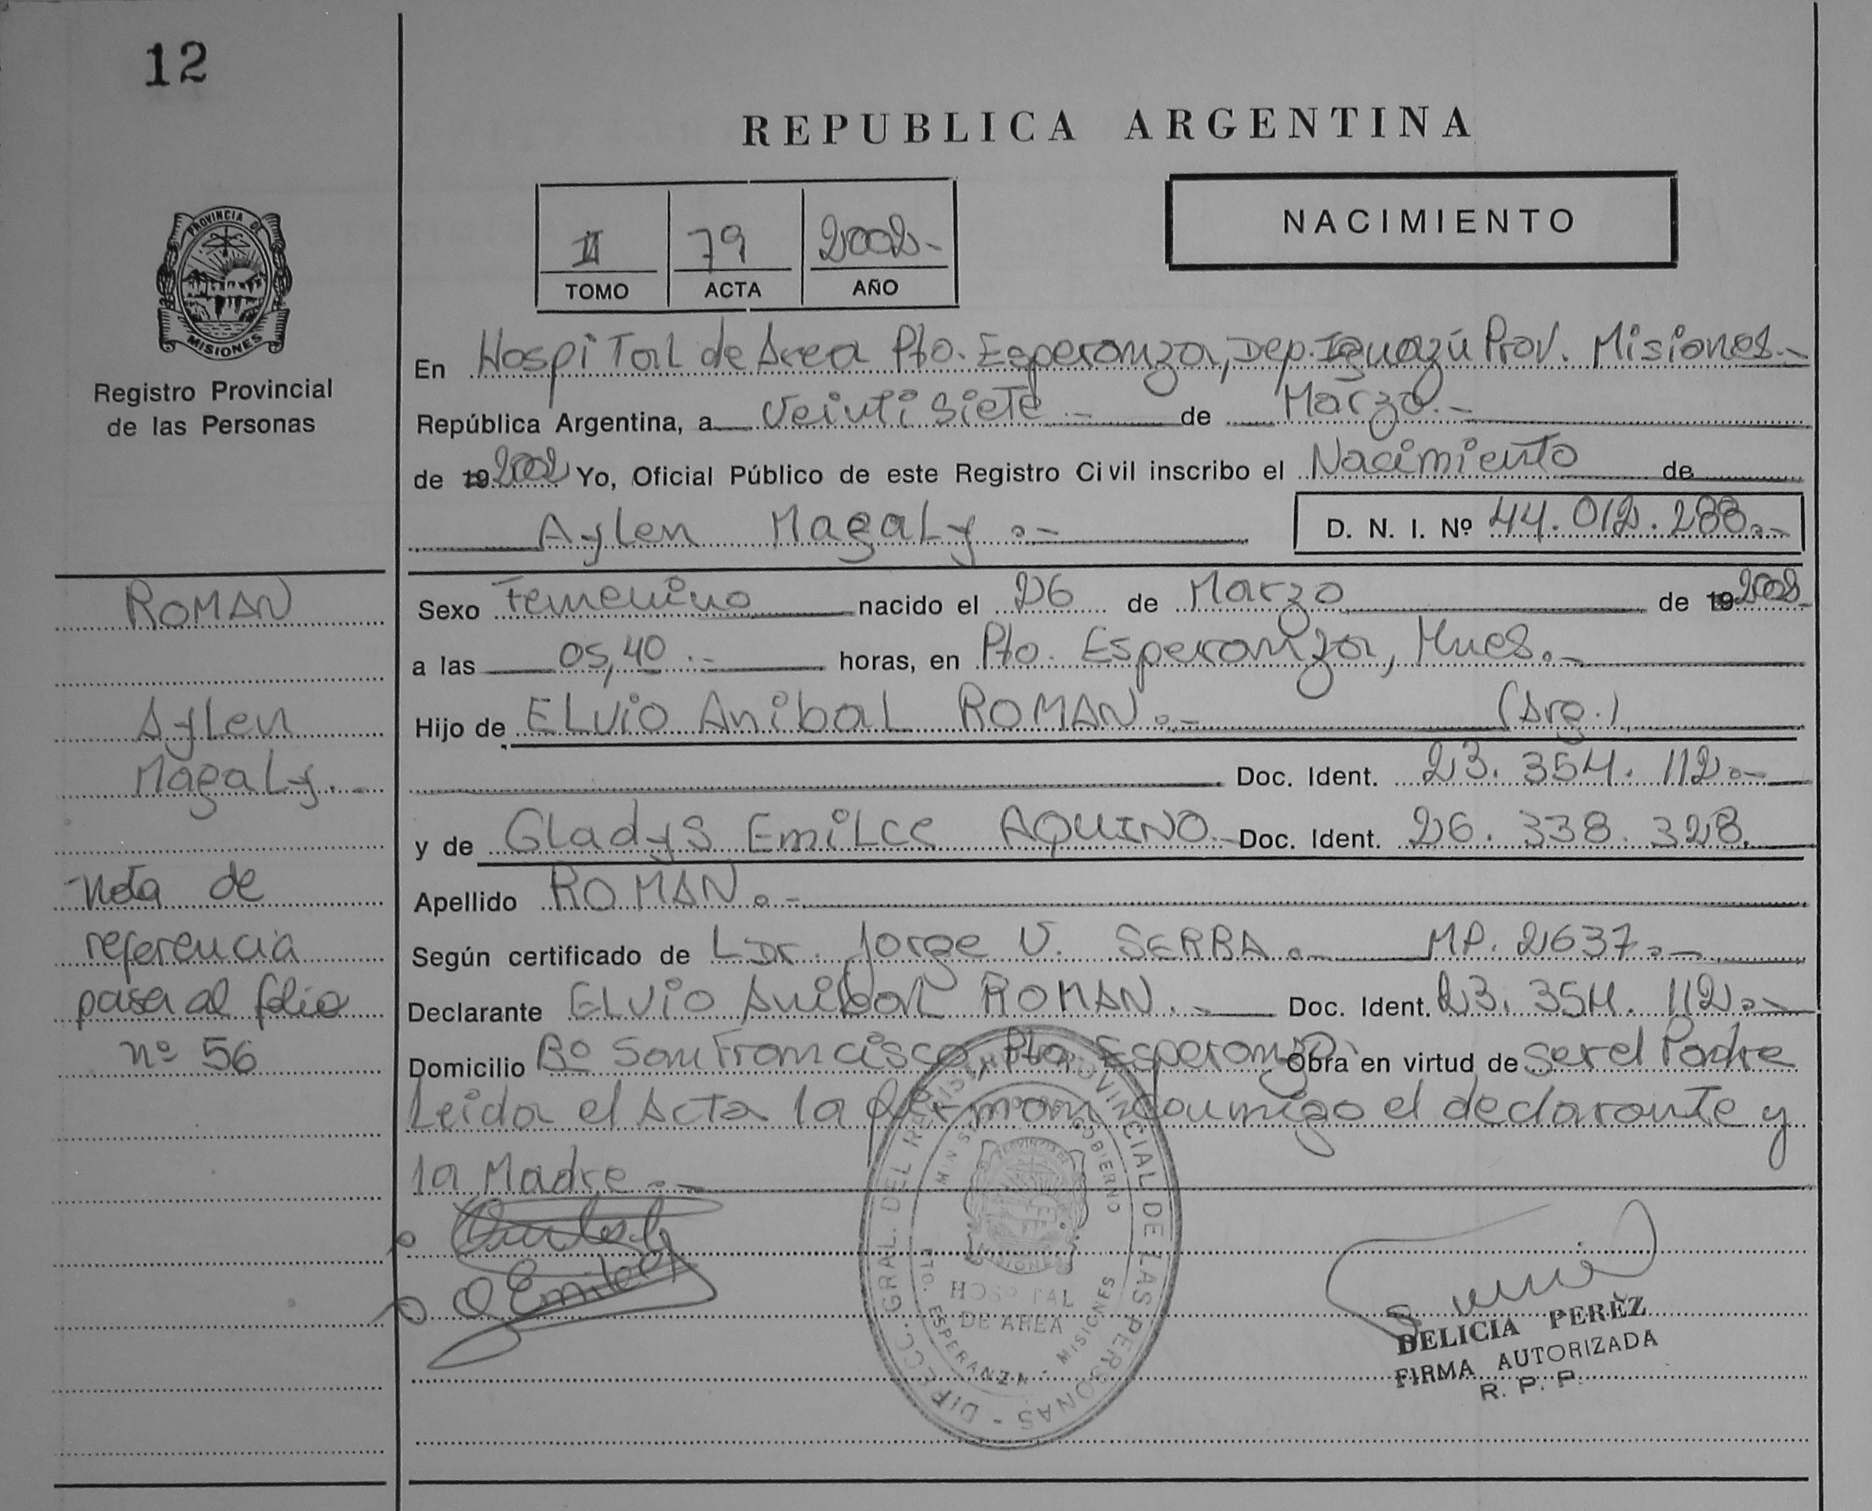 12
REPUBLICA ARGENTINA
NACIMIENTO
II 79 2002-
TOMO ACTA AÑO
PROVINCIA DE
MISIONES
Registro Provincial
de las Personas
En Hospital de Area Pto. Esperanza, Dep. Iguazú Prov. Misiones.-
República Argentina, a Veintisiete.- de Marzo.-
de 19 2002 Yo, Oficial Público de este Registro Civil inscribo el Nacimiento de
Aylen Magaly.- D. N. I. Nº 44.012.288.-
Sexo Femenino nacido el 26 de Marzo de 19 2002
a las 05,40.- horas, en Pto. Esperanza, Mnes.-
Hijo de ELVIO Anibal ROMAN.- (Arg.)
Doc. Ident. 23.354.112.-
y de Gladys Emilce AQUINO.- Doc. Ident. 26.338.328.
Apellido ROMAN.-
Según certificado de Dr. Jorge V. SERRA. MP. 2637.-
Declarante ELVIO Anibal ROMAN.- Doc. Ident. 23.354.112.-
Domicilio Bº San Francisco, Pto. Esperanza Obra en virtud de ser el Padre
Leida el Acta la firman conmigo el declarante y
la Madre.-
ROMAN
Aylen
Magaly.-
Nota de
referencia
pasa al folio
nº 56
DIRECC. GRAL. DEL REGISTRO PROVINCIAL DE LAS PERSONAS
GOBIERNO
HOSPITAL
DE AREA
PTO. ESPERANZA - MISIONES
Emilce
DELICIA PERÈZ
FIRMA AUTORIZADA
R. P. P.